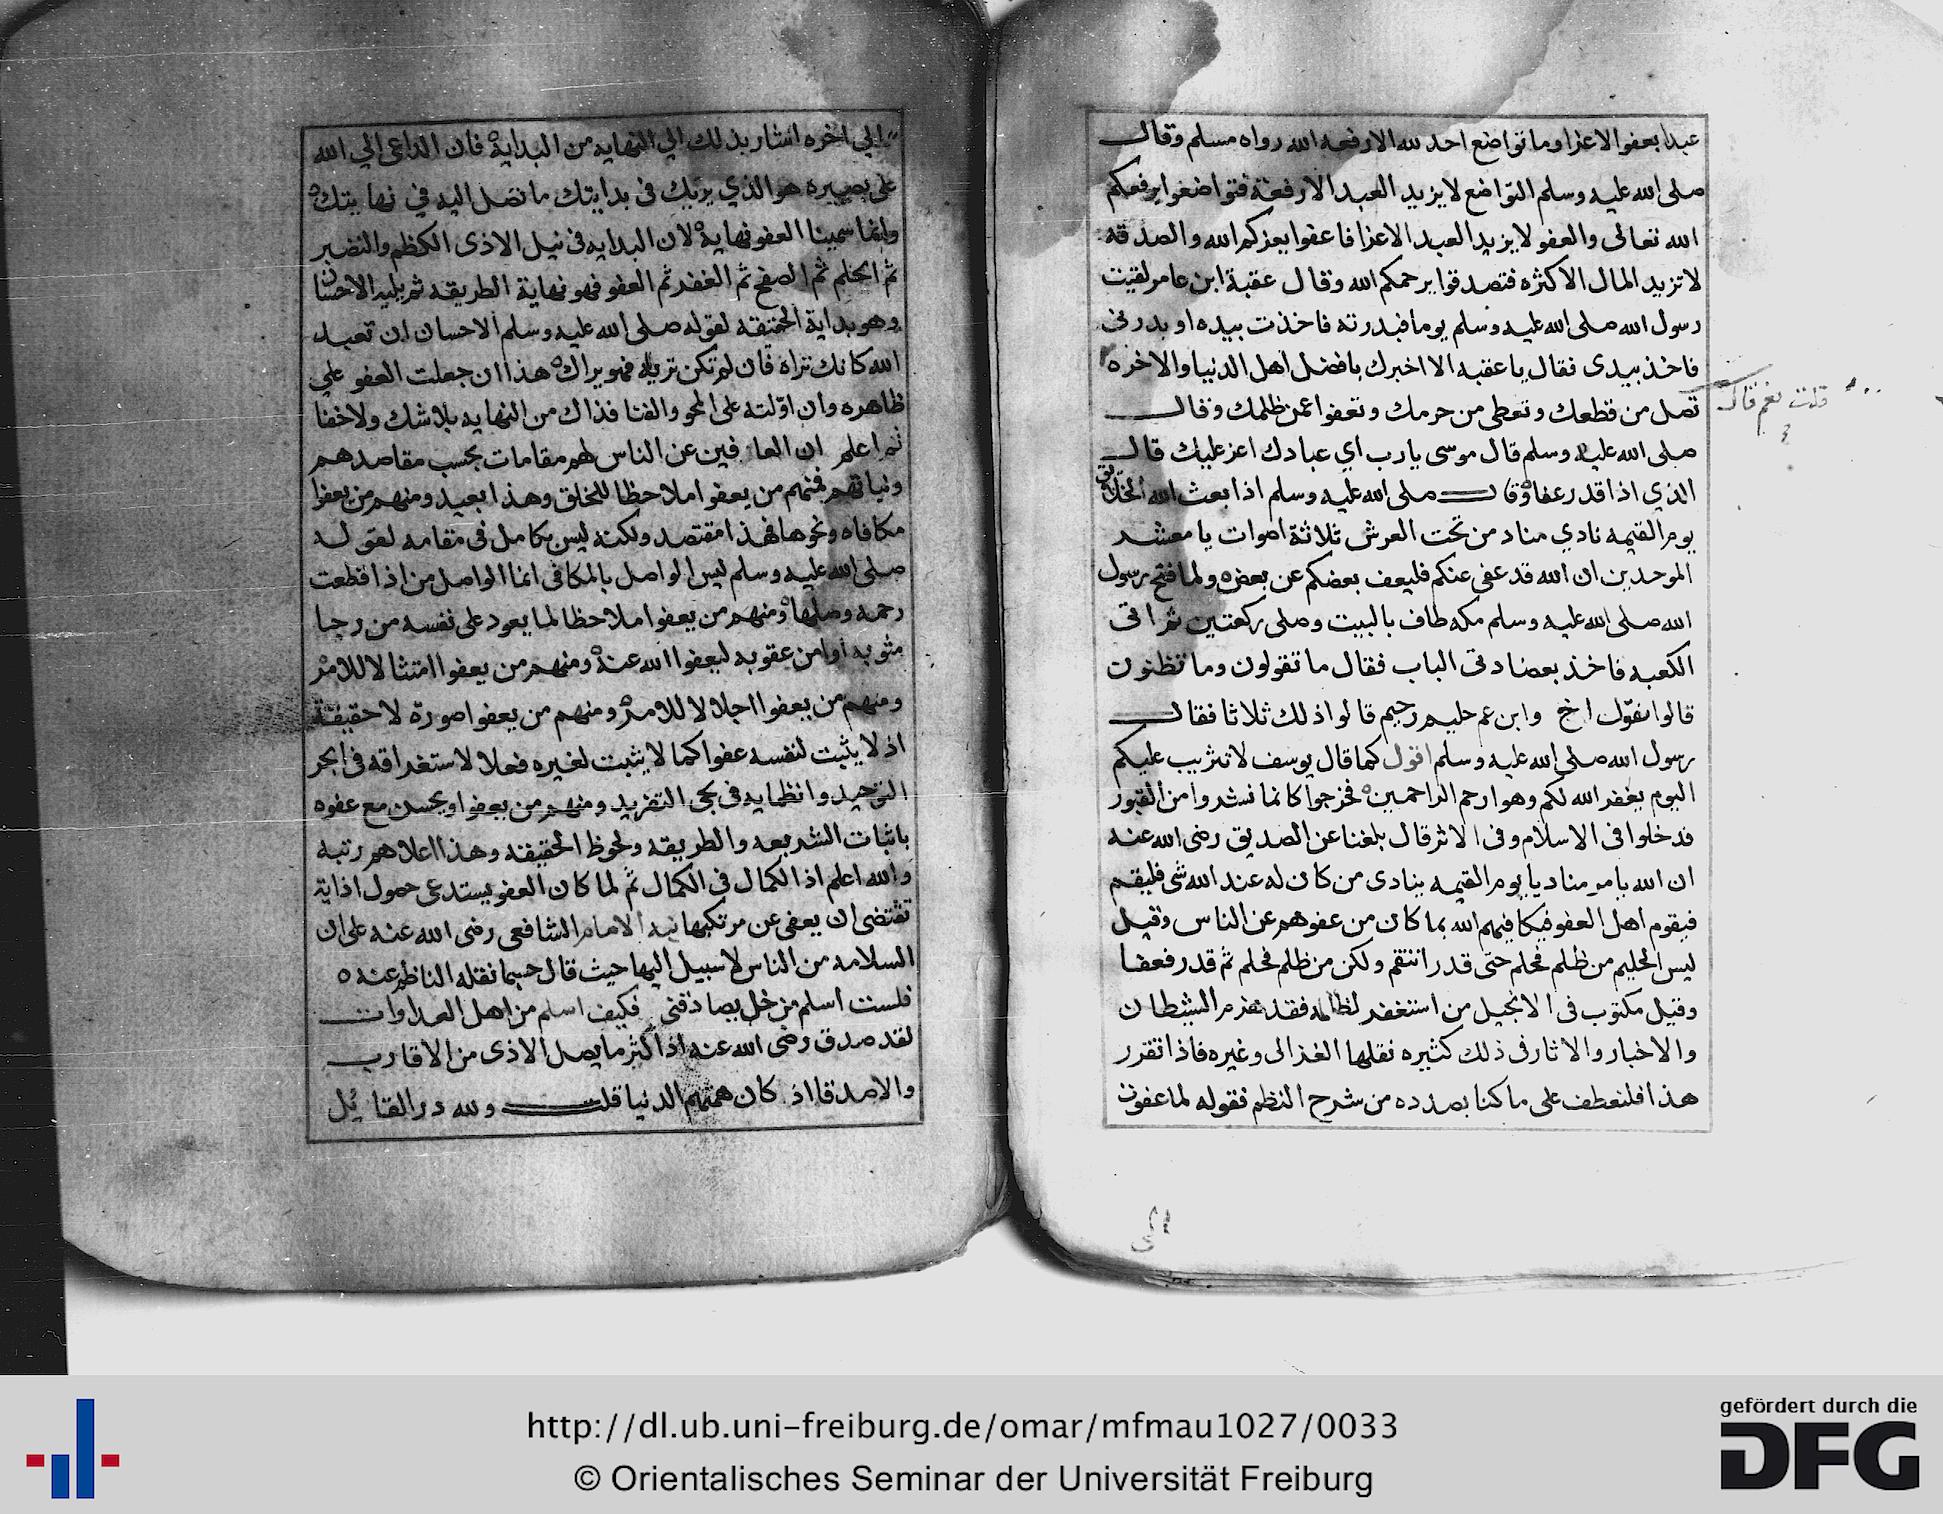 عبدا بعفو الاعزا وما تواضع احد لله الا رفعه الله رواه مسلم وقال
صلى الله عليه وسلم التواضع لا يزيد العبد الا رفعة فتواضعوا يرفعكم
الله تعالى والعفو لا يزيد العبد الا عزا فاعفوا يعزكم الله والصدقه
لا تزيد المال الا كثره فتصدقوا يرحمكم الله وقال عقبة ابن عامر لقيت
رسول الله صلى الله عليه وسلم يوما فبدرته فاخذت بيده او بدرنى
فاخذ بيدى فقال يا عقبه الا اخبرك بافضل اهل الدنيا والاخره
قلت نعم قال
تصل من قطعك وتعطى من حرمك وتعفوا عمن ظلمك وقال
صلى الله عليه وسلم قال موسى يا رب اي عبادك اعز عليك قال
الذي اذا قدر عفا وقال صلى الله عليه وسلم اذا بعث الله الخلايق
يوم القيمه نادي مناد من تحت العرش ثلاثة اصوات يا معشر
الموحدين ان الله قد عفى عنكم فليعف بعضكم عن بعض ولما فتح رسول
الله صلى الله عليه وسلم مكه طاف بالبيت وصلى ركعتين ثم اتى
الكعبه فاخذ بعضادتى الباب فقال ما تقولون وما تظنون
قالوا نقول اخ وابن عم حليم رحيم قالوا ذلك ثلاثا فقال
رسول الله صلى الله عليه وسلم اقول كما قال يوسف لا تثريب عليكم
اليوم يغفر الله لكم وهو ارحم الراحمين فخرجوا كانما نشروا من القبور
فدخلوا فى الاسلام وفى الاثر قال بلغنا عن الصديق رضى الله عنه
ان الله يامر مناديا يوم القيمه ينادى من كان له عند الله شى فليقم
فيقوم اهل العفو فيكافيهم الله بما كان من عفوهم عن الناس وقيل
ليس الحليم من ظلم فحلم حتى قدر انتقم ولكن من ظلم فحلم ثم قدر فعفا
وقيل مكتوب فى الانجيل من استغفر لظالمه فقد هزم الشيطان
والاخبار والاثار فى ذلك كثيره نقلها الغزالى وغيره فاذا تقرر
هذا فلنعطف على ما كنا بصدده من شرح النظم فقوله لما عفوت
الى
الي اخره اشار بذلك الي النهايه من البداية فان الداعى الي الله
على بصيره هو الذي يريك فى بدايتك ما تصل اليه في نهايتك
وانما سمينا العفو نهاية لان البدايه فى نيل الاذى الكظم والتصبر
ثم الحلم ثم الصفح ثم الغفر ثم العفو فهو نهاية الطريقه ثم يليه الاحسان
وهو بداية الحقيقه لقوله صلى الله عليه وسلم الاحسان ان تعبد
الله كانك تراه فان لم تكن تريه فهو يراك هذا ان جعلت العفو علي
ظاهره وان اولته على المحو والفنا فذاك من النهايه بلا شك ولا خفا
ثم اعلم ان العافين عن الناس لهم مقامات بحسب مقاصدهم
ونياتهم فمنهم من يعفوا ملاحظا للخلق وهذا بعيد ومنهم من يعفوا
مكافاه ونحوها فهذا مقتصد ولكنه ليس بكامل فى مقامه لقوله
صلى الله عليه وسلم ليس الواصل بالمكافى انما الواصل من اذا قطعت
رحمه وصلها ومنهم من يعفوا ملاحظا لما يعود على نفسه من رجا
مثوبه او امن عقوبه ليعفوا الله عنه ومنهم من يعفوا امتثالا للامر
ومنهم من يعفوا اجلالا للامر ومنهم من يعفوا صورة لا حقيقة
اذ لا يثبت لنفسه عفوا كما لا يثبت لغيره فعلا لاستغراقه فى ابحر
التوحيد وانظمايه فى لجى التفريد ومنهم من يعفوا ويحسن مع عفوه
باثبات الشريعه والطريقه ولحوظ الحقيقه وهذا اعلاهم رتبه
والله اعلم اذ الكمال فى الكمال ثم لما كان العفو يستدعى حصول اذاية
تقتضى ان يعفى عن مرتكبها نبه الامام الشافعى رضى الله عنه على ان
السلامه من الناس لا سبيل اليها حيث قال حسبما نقله الناظم عنه
فلست اسلم من خل يصادقنى فكيف اسلم من اهل العداوات
لقد صدق رضى الله عنه اذ اكثر ما يصل الاذى من الاقارب
والاصدقا اذ كان همتهم الدنيا قلت ولله در القايل
http://dl.ub.uni-freiburg.de/omar/mfmau1027/0033
© Orientalisches Seminar der Universität Freiburg
gefördert durch die
DFG